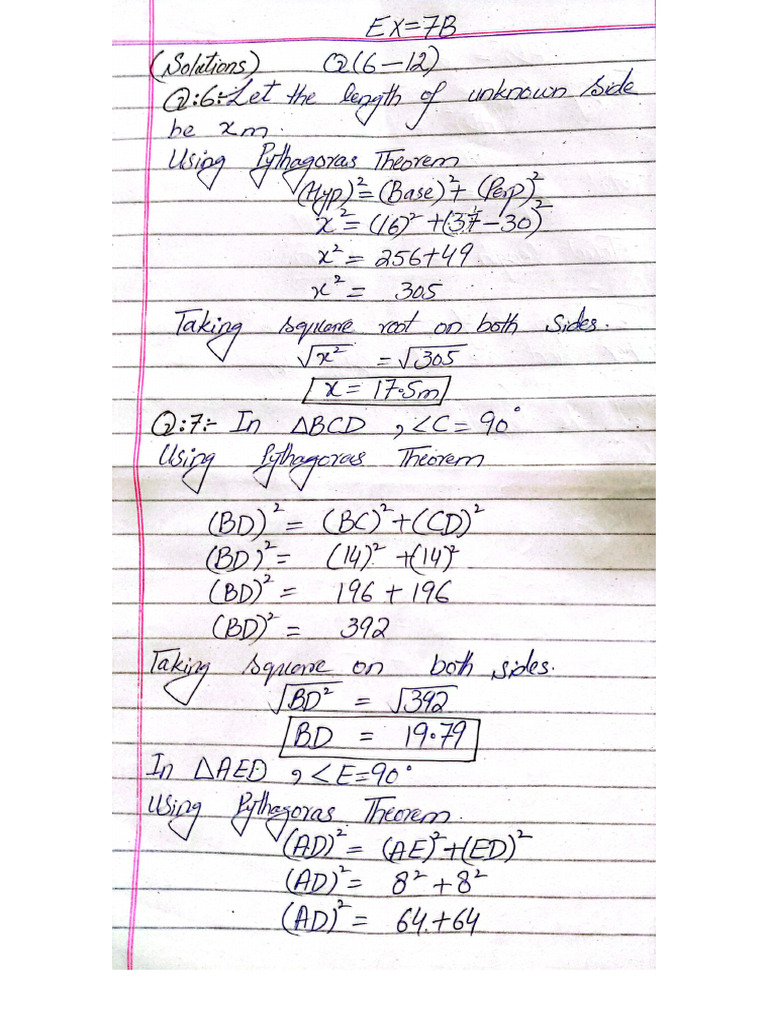 EX=7B
(Solutions) Q(6-12)
Q:6:- Let the length of unknown side
be xm.
Using Pythagoras Theorem
(Hyp)² = (Base)² + (Perp)²
x² = (16)² + (37-30)²
x² = 256+49
x² = 305
Taking square root on both sides.
√x² = √305
x = 17.5m
Q:7:- In △BCD , <C = 90°
Using Pythagoras Theorem
(BD)² = (BC)² + (CD)²
(BD)² = (14)² + (14)²
(BD)² = 196 + 196
(BD)² = 392
Taking square on both sides.
√BD² = √392
BD = 19.79
In △AED , <E=90°
Using Pythagoras Theorem.
(AD)² = (AE)² + (ED)²
(AD)² = 8² + 8²
(AD)² = 64 + 64